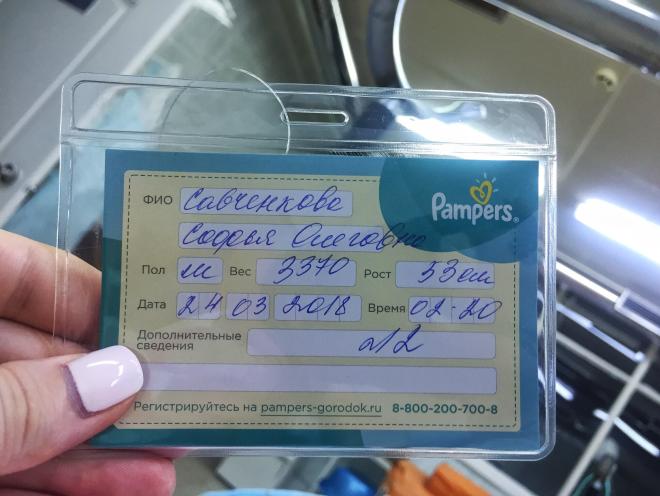 Pampers®
ФИО Савченкова
Софья Олеговна
Пол Вес 3370 Рост 53 см
Дата 24 03 2018 Время 02-20
Дополнительные
сведения
Регистрируйтесь на pampers-gorodok.ru 8-800-200-700-8